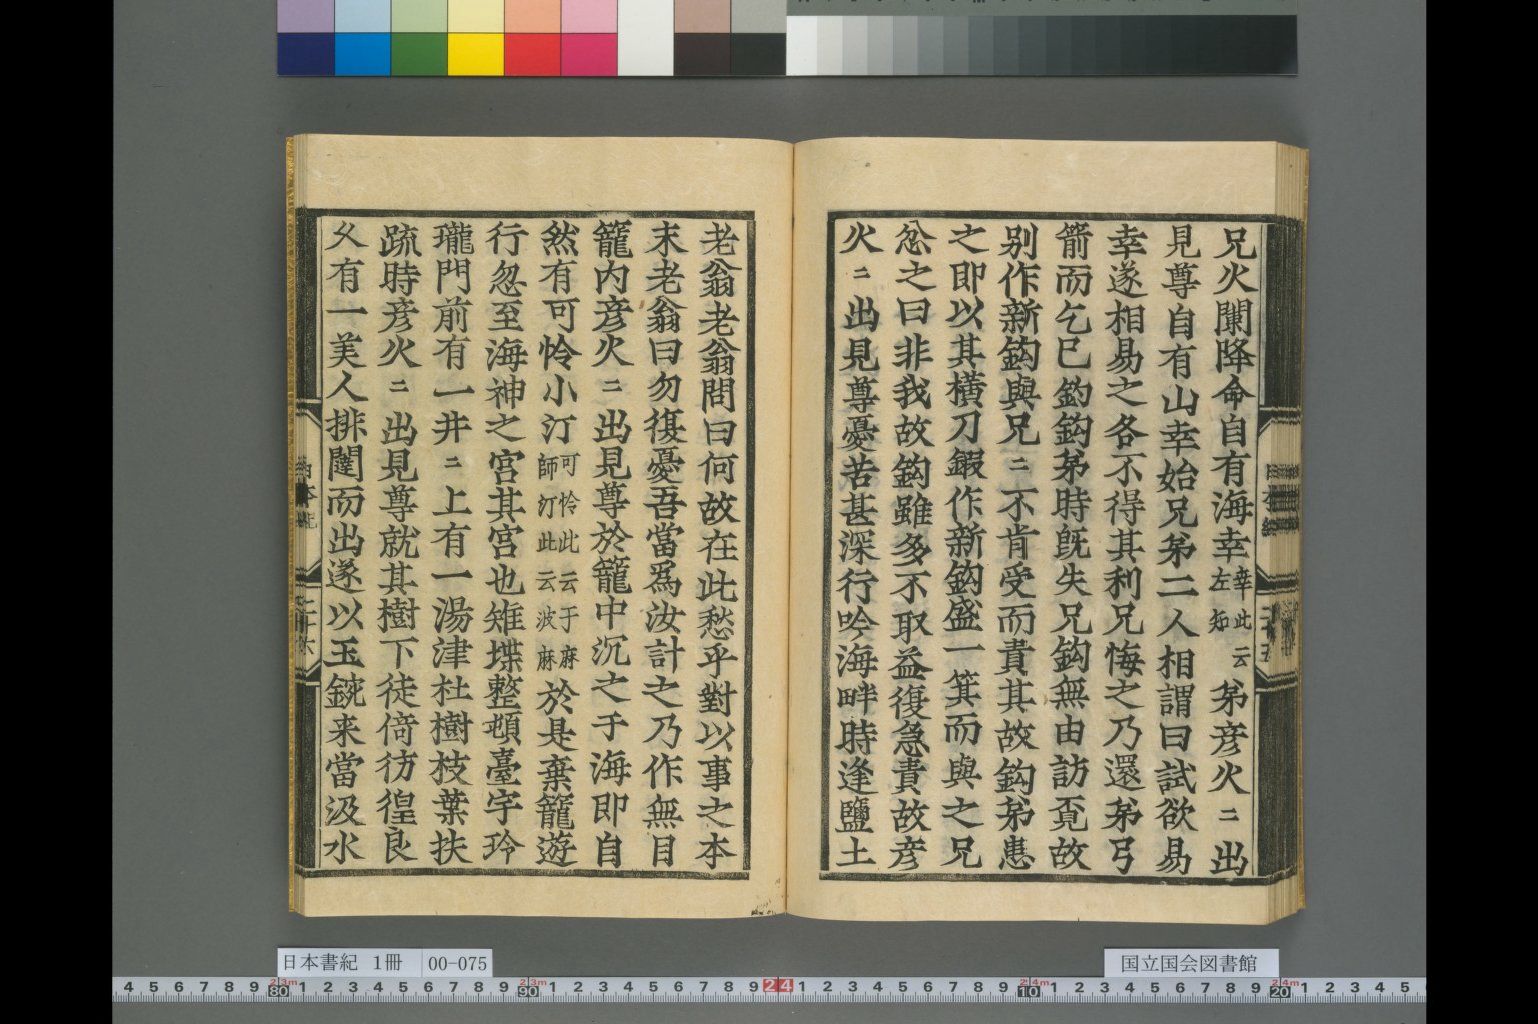 兄火闌降命自有海幸幸此云左知弟彦火二出
見尊自有山幸始兄弟二人相謂曰試欲易
幸遂相易之各不得其利兄悔之乃還弟弓
箭而乞已釣鈎弟時既失兄鈎無由訪覓故
別作新鈎與兄二不肯受而責其故鈎弟患
之即以其横刀鍜作新鈎盛一箕而與之兄
忿之曰非我故鈎雖多不取益復急責故彦
火二出見尊憂苦甚深行吟海畔時逢鹽土
老翁老翁問曰何故在此愁乎對以事之本
末老翁曰勿復憂吾當爲汝計之乃作無目
籠内彦火二出見尊於籠中沉之于海即自
然有可怜小汀可怜此云于麻師汀此云波麻於是棄籠遊
行忽至海神之宮其宮也雉堞整頓臺宇玲
瓏門前有一井二上有一湯津杜樹枝葉扶
疏時彦火二出見尊就其樹下徒倚彷徨良
久有一美人排闥而出遂以玉鋺来當汲水
二十六
日本書紀 1冊 00-075
国立国会図書館